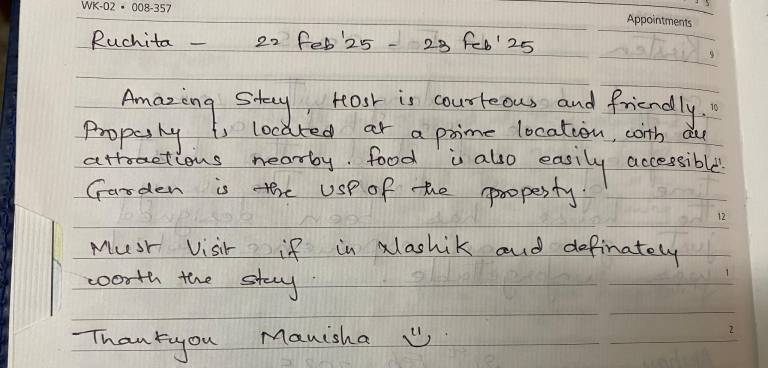 WK-02 • 008-357
Appointments
Ruchita - 22 Feb '25 - 23 Feb '25
9
Amazing Stay, Host is courteous and friendly. 10
Property is located at a prime location, with all
attractions nearby. food is also easily accessible.
Garden is the USP of the property.
12
Must Visit if in Nashik and definately
worth the stay.
1
Thankyou Manisha ☺.
2